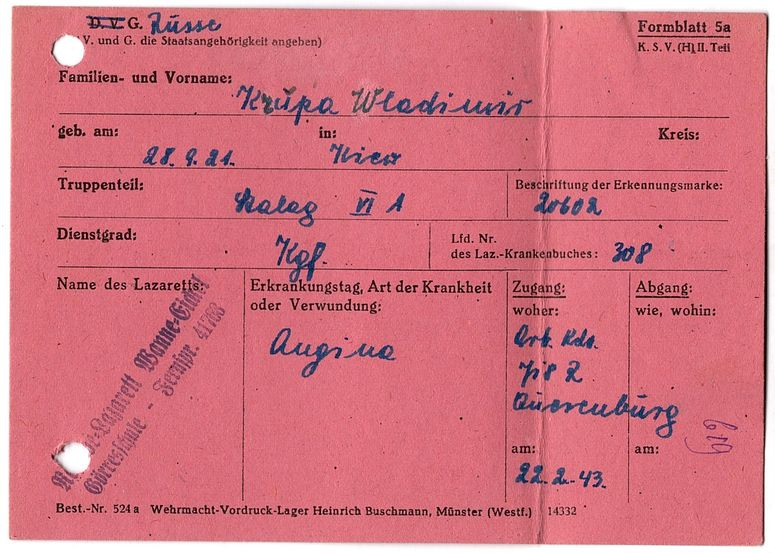 D. V. G. Russe
V. und G. die Staatsangehörigkeit angeben)
Formblatt 5a
K. S. V. (H) II. Teil
Familien- und Vorname:
Krupa Wladimir
geb. am: in: Kreis:
28. 9. 21. Kiew
Truppenteil: Beschriftung der Erkennungsmarke:
Stalag VI A 20602
Dienstgrad: Lfd. Nr.
Kgf. des Laz.-Krankenbuches: 308
Name des Lazaretts: Erkrankungstag, Art der Krankheit
oder Verwundung:
Angina
Zugang:
woher:
Arb. Kdo.
Querenburg
am:
22. 2. 43.
Abgang:
wie, wohin:
am:
619
-Lazarett Wanne-Eickel
Görresschule - Fernspr. 41763
Best.-Nr. 524 a Wehrmacht-Vordruck-Lager Heinrich Buschmann, Münster (Westf.) 14332